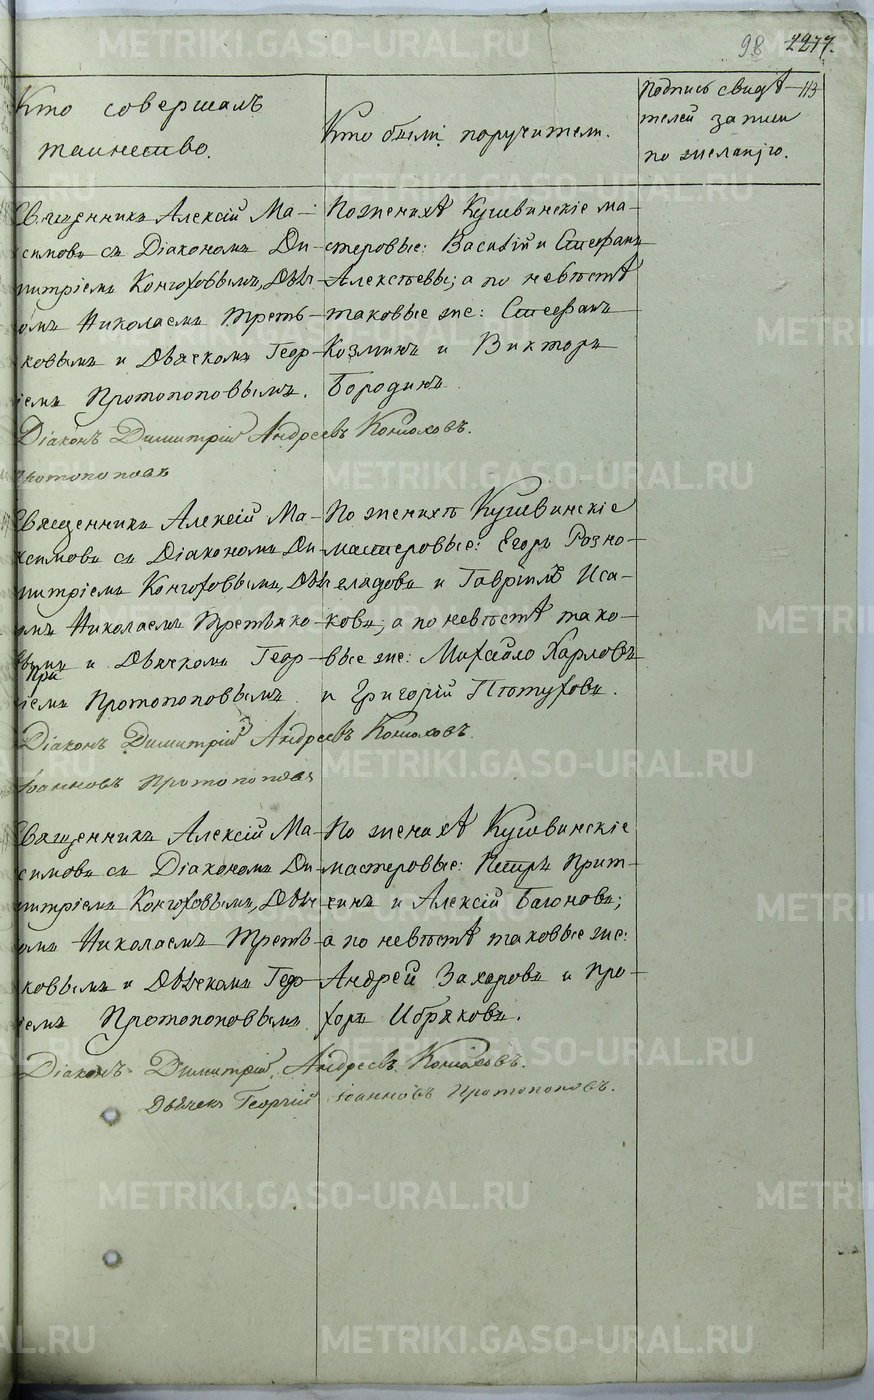 98 2277.
113
Кто совершалъ
таинство.
Кто были поручители.
Подпись свидѣ-
телей записи
по желанію.
Священникъ Алексій Ма-
ксимовъ съ Діакономъ Ди-
митріемъ Конюховымъ, Дьяч-
омъ Николаемъ Треть-
ковымъ и Дьячкомъ Геор-
іемъ Протопоповымъ.
По женихѣ Кушвинскіе ма-
стеровые: Василій и Стефанъ
Алексѣевы; а по невѣстѣ
таковые же: Стефанъ
Козминъ и Викторъ
Бородинъ.
Діаконъ Димитрій Андреевъ Конюховъ.
Протопоповъ
Священникъ Алексій Ма-
ксимовъ съ Діакономъ Ди-
митріемъ Конюховымъ, Дьяч-
омъ Николаемъ Третьяко-
вымъ и Дьячкомъ Геор-
іемъ Протопоповымъ
По женихѣ Кушвинскіе
мастеровые: Егоръ
и Гавріилъ Иса-
ковъ; а по невѣстѣ тако-
вые же: Михайло Харловъ
и Григорій Пѣтуховъ.
Діаконъ Димитрій Андреевъ Конюховъ.
Іоанновъ Протопоповъ
Священникъ Алексій Ма-
ксимовъ съ Діакономъ Ди-
митріемъ Конюховымъ, Дьяч-
омъ Николаемъ Треть-
ковымъ и Дьячкомъ Геор-
іемъ Протопоповымъ
По женихѣ Кушвинскіе
мастеровые: Петръ Прит-
чинъ и Алексій Багоновъ;
а по невѣстѣ таковые же:
Андрей Захаровъ и Про-
хоръ Ибряковъ.
Діаконъ Димитрій Андреевъ Конюховъ.
Дьячекъ Георгій Іоанновъ Протопоповъ.
METRIKI.GASO-URAL.RU